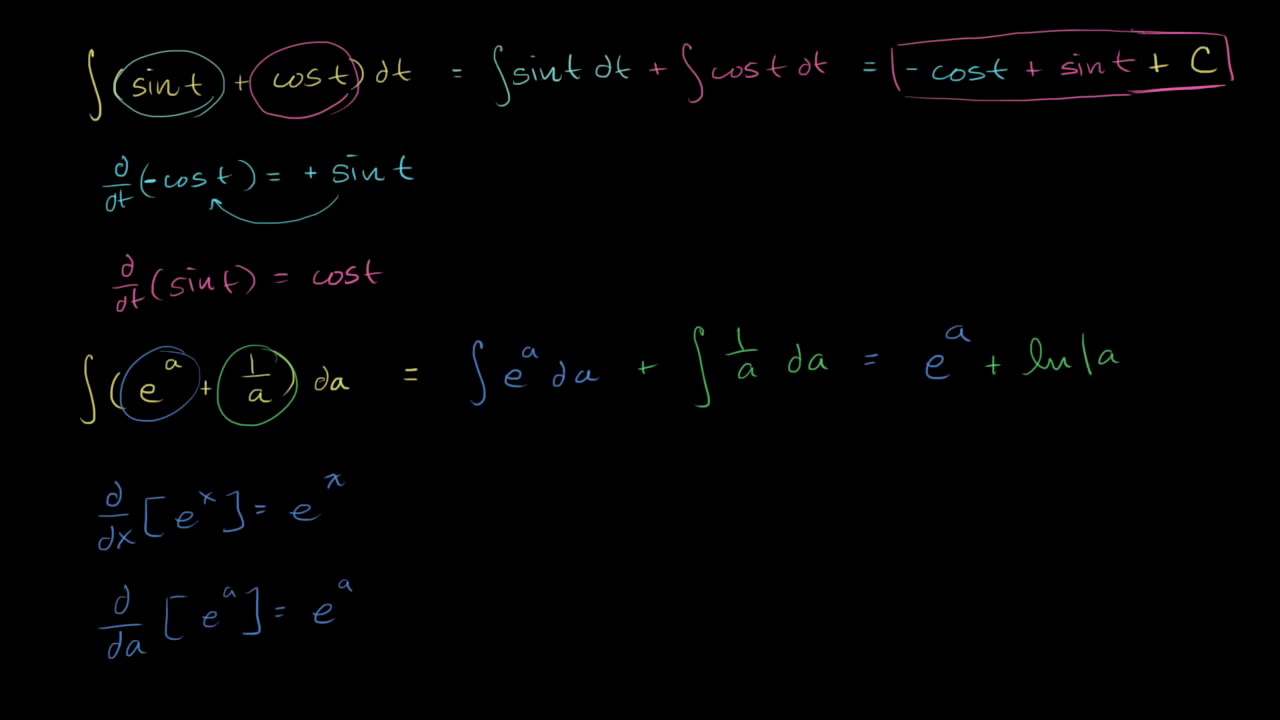 ∫(sin t + cos t) dt = ∫sin t dt + ∫cos t dt = - cos t + sin t + C
d/dt (-cos t) = + sin t
d/dt (sin t) = cos t
∫(e^a + 1/a) da = ∫e^a da + ∫1/a da = e^a + ln|a
d/dx [e^x] = e^x
d/da [e^a] = e^a